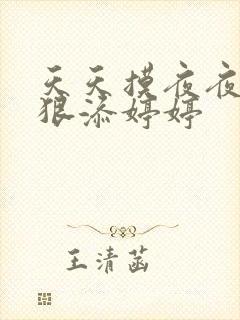 天天摸夜夜
狠添婷婷
王清菡